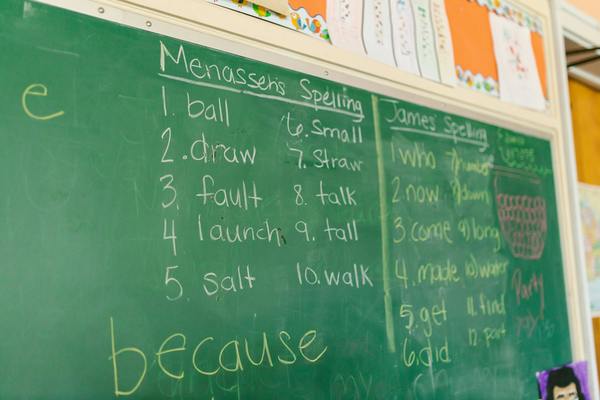 e
Menassen's Spelling
1. ball
2. draw
3. fault
4 launch
5. salt
6. Small
7. Straw
8. talk
9. tall
10. walk
because
James' Spelling
1 who
2. now
3. come
4. made
5. get
6. did
7) number
8) down
9) long
10) water
11. find
12. part
Party